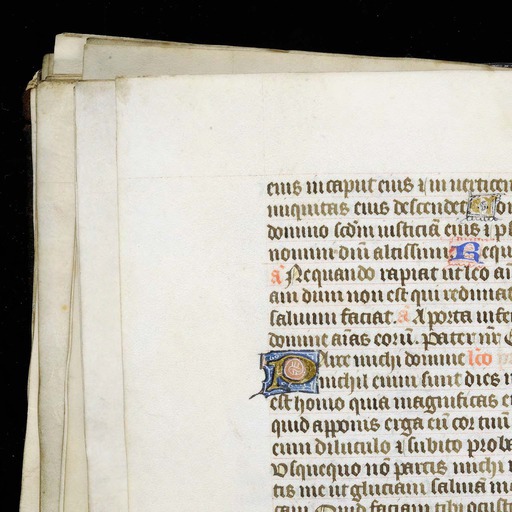 eius in caput eius ⁊ in uerticem
iniquitas eius descendet
domino scdm̄ iusticiā eius ⁊ ps
nomini dn̄i altissimi. Requ
a̅ Nequando rapiat ut leo an
am dum non est qui redimat
saluum faciat. a̅ A porta infe
domine aīas eorū. Pater nr̄
Parce michi domine lc̄o
nichil enim sunt dies m
est homo quia magnificas e
quid apponis erga eū cor tuū
eum diluculo ⁊ subito proba
Vsquequo nō parcis michi n
tis me ut gluciam saliuā m
cam Quid faciam tibi o custo